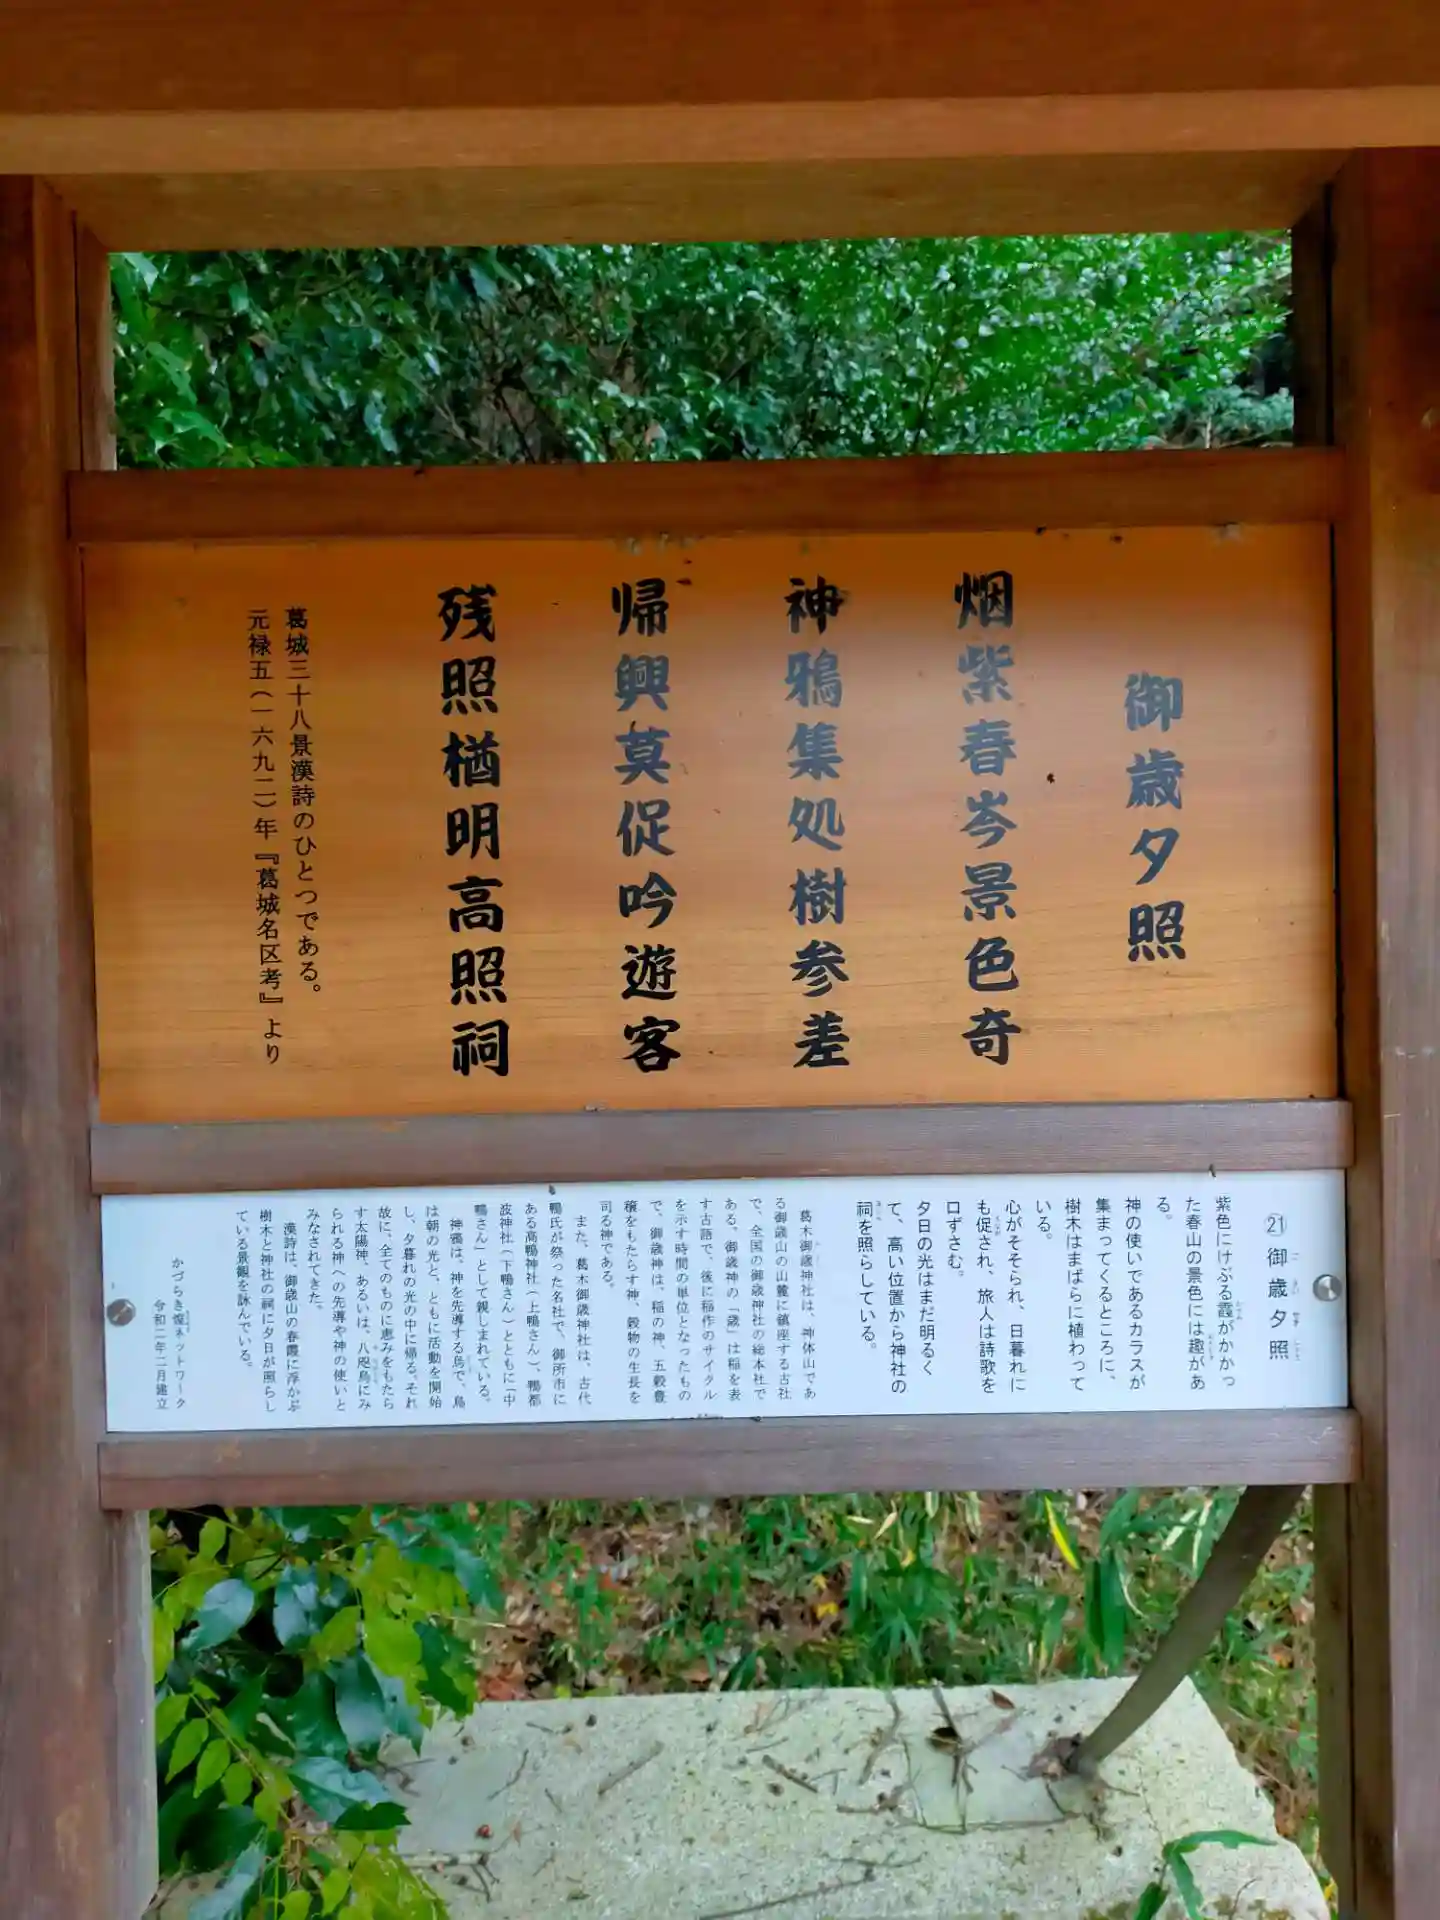 御歳夕照
烟紫春岑景色奇
神鴉集処樹参差
帰興莫促吟遊客
残照楢明高照祠
葛城三十八景漢詩のひとつである。
元禄五(一六九二)年『葛城名区考』より
㉑御歳夕照
紫色にけぶる霞がかかっ
た春山の景色には趣があ
る。
神の使いであるカラスが
集まってくるところに、
樹木はまばらに植わって
いる。
心がそそられ、日暮れに
も促され、旅人は詩歌を
口ずさむ。
夕日の光はまだ明るく
て、高い位置から神社の
祠を照らしている。
葛木御歳神社は、神体山であ
る御歳山の山麓に鎮座する古社
で、全国の御歳神社の総本社で
ある。御歳神の「歳」は稲を表
す古語で、後に稲作のサイクル
を示す時間の単位となったもの
で、御歳神は、稲の神、五穀豊
穣をもたらす神、穀物の生長を
司る神である。
また、葛木御歳神社は、古代
鴨氏が祭った名社で、御所市に
ある高鴨神社(上鴨さん)、鴨都
波神社(下鴨さん)とともに「中
鴨さん」として親しまれている。
神鴉は、神を先導する烏で、烏
は朝の光と、ともに活動を開始
し、夕暮れの光の中に帰る。それ
故に、全てのものに恵みをもたら
す太陽神、あるいは、八咫烏にみ
られる神への先導や神の使いと
みなされてきた。
漢詩は、御歳山の春霞に浮かぶ
樹木と神社の祠に夕日が照らし
ている景観を詠んでいる。
かづらき煌ネットワーク
令和二年二月建立